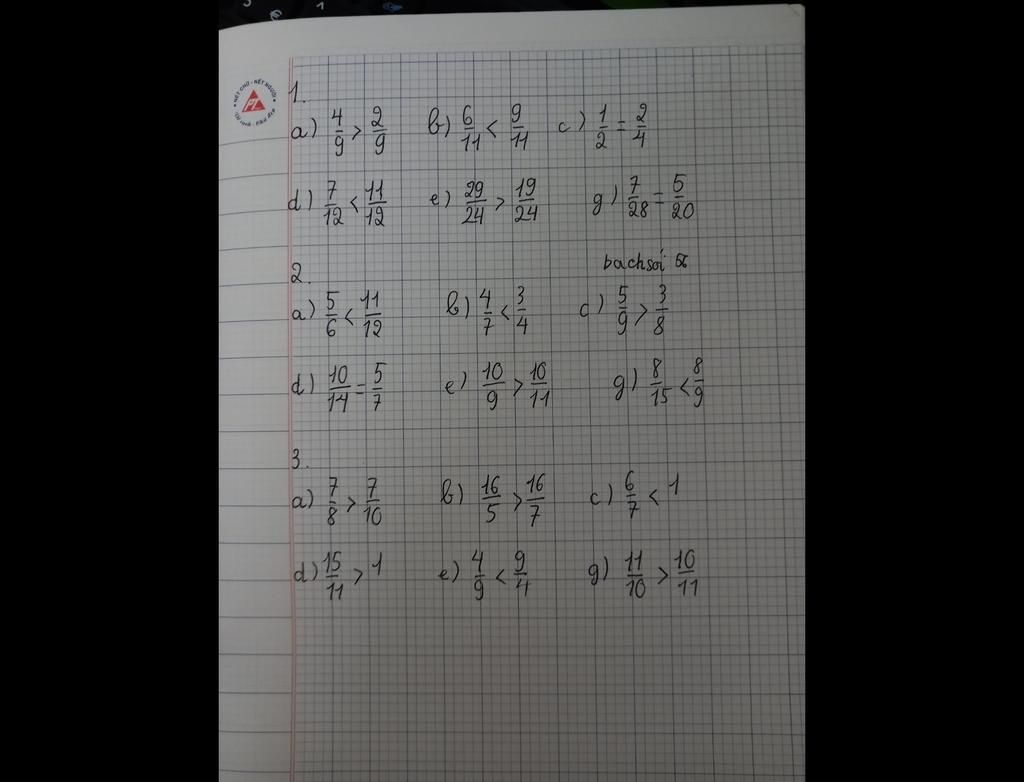 NÉT CHỮ - NẾT NGƯỜI
PL
1.
a) 4/9 > 2/9 b) 6/11 < 9/11 c) 1/2 = 2/4
d) 7/12 < 11/12 e) 29/24 > 19/24 g) 7/28 = 5/20
bachsói
2.
a) 5/6 < 11/12 b) 4/7 < 3/4 c) 5/9 > 3/8
d) 10/14 = 5/7 e) 10/9 > 10/11 g) 8/15 < 8/9
3.
a) 7/8 > 7/10 b) 16/5 > 16/7 c) 6/7 < 1
d) 15/11 > 1 e) 4/9 < 9/4 g) 11/10 > 10/11